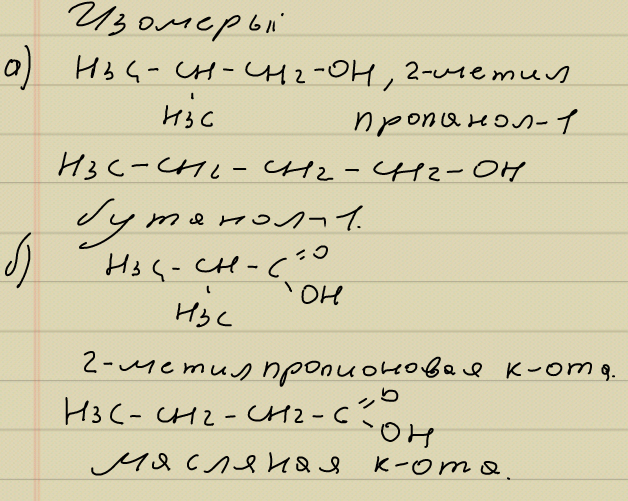 Изомеры:
а) H3C - CH - CH2 - OH, 2-метил
H3C пропанол-1
H3C - CH2 - CH2 - CH2 - OH
бутанол-1.
б) H3C - CH - C = O
H3C OH
2-метилпропионовая к-ота.
H3C - CH2 - CH2 - C = O
OH
масляная к-ота.